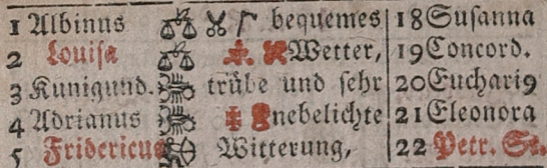 1 Albinus bequemes 18 Suſanna
2 Louiſa Wetter, 19 Concord.
3 Kunigund. trübe und ſehr 20 Euchari9
4 Adrianus nebelichte 21 Eleonora
5 Fridericus Witterung, 22 Petr. St.